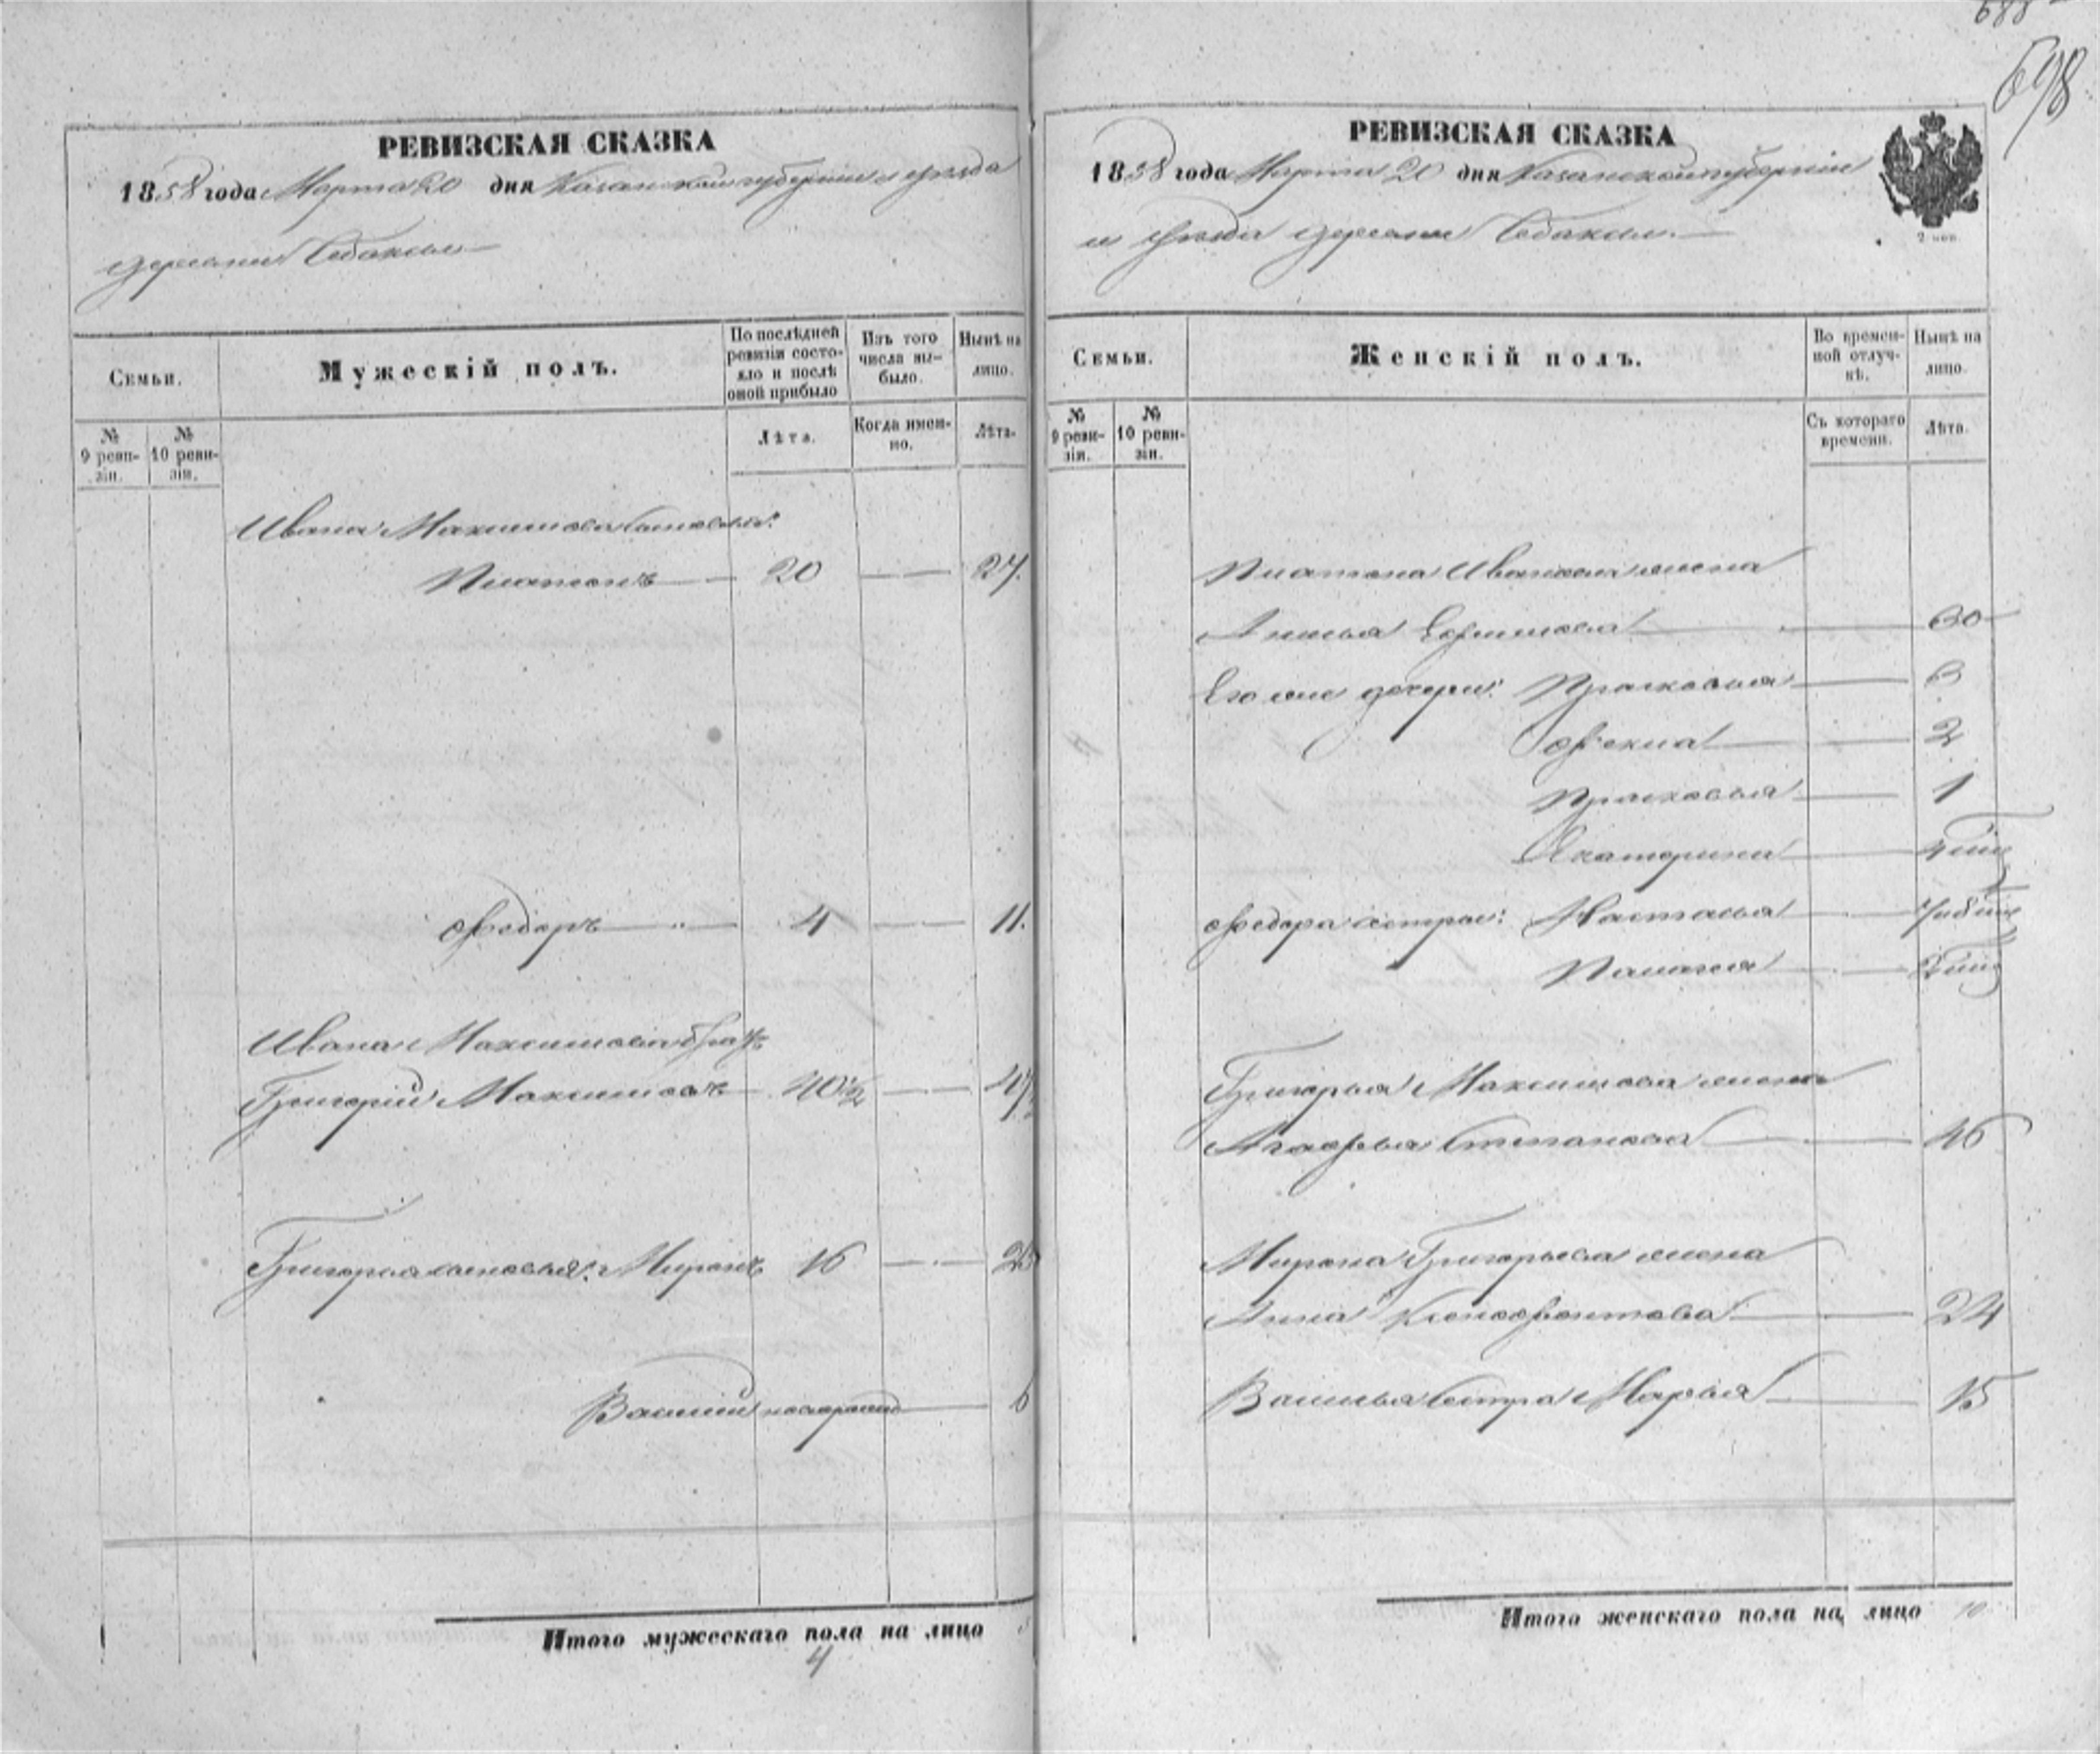 688
698
РЕВИЗСКАЯ СКАЗКА
1858 года Марта 20 дня Казанской губернии и уезда
деревни Собакин
Семьи.
Мужескій полъ.
По послѣдней ревизіи состояло и послѣ оной прибыло
Изъ того числа выбыло.
Нынѣ на лицо.
№ 9 ревизіи.
№ 10 ревизіи.
Лѣта.
Когда именно.
Лѣта.
Ивана Максимова сыновья:
Платонъ 20 27.
Ѳедоръ 4 11.
Ивана Максимова братъ
Григорій Максимовъ 40½ 47½
Григорья сыновья: Миронъ 16 23
Василій 6
Итого мужескаго пола на лицо
4
РЕВИЗСКАЯ СКАЗКА
1858 года Марта 20 дня Казанской губерніи
и уезда деревни
2 коп.
Семьи.
Женскій полъ.
Во временной отлучкѣ.
Нынѣ на лицо.
№ 9 ревизіи.
№ 10 ревизіи.
Съ котораго времени.
Лѣта.
Платона Иванова жена
Ефимова 30
Его же дочери: Прасковья 3
Ѳекла 2
Прасковья 1
Екатерина
Ѳедора сестры: Настасья
Палагея
Григорья Максимова жена
Агафья Степанова 46
Мирона Григорьева жена
Анна Ксенофонтова 24
Василья сестра Марья 15
Итого женскаго пола на лицо 10